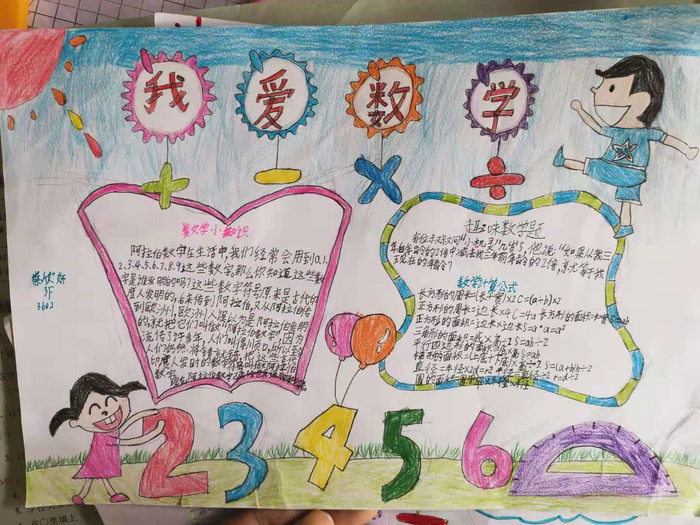 我爱数学
+ − × ÷
数学小知识
阿拉伯数字在生活中,我们经常会用到0.1.
2.3.4.5.6.7.8.9这些数字,那么你知道这些数
字是谁发明的吗?这些数字符号原来是古代印
度人发明的,后来传到阿拉伯,又从阿拉伯传
到欧洲,欧洲人误以为是阿拉伯人发明
的,就把它们叫做"阿拉伯数字",因为
流传了许多年,人们叫得顺口,所以至今
人们仍然将错就错,把这些古代
印度人发明的数字符号叫做阿拉伯
数字。
趣味数学题
有位末双又问"小机灵"几岁了,他说:"如果从我三
年后年龄的2倍中减去我三年前年龄的2倍,就等于我
现在的年龄?
数学计算公式
长方形的周长=(长+宽)×2 C=(a+b)×2
正方形的周长=边长×4 C=4a 长方形的面积=长×宽 S=ab
正方形的面积=边长×边长 S=a*a=a²
三角形的面积=底×高÷2 S=ah÷2
平行四边形的面积=底×高 S=ah
梯形的面积=(上底+下底)×高÷2 S=(a+b)h÷2
直径=半径×2 d=2r 半径=直径÷2 r=d÷2
3F
3602
2 3 4 5 6